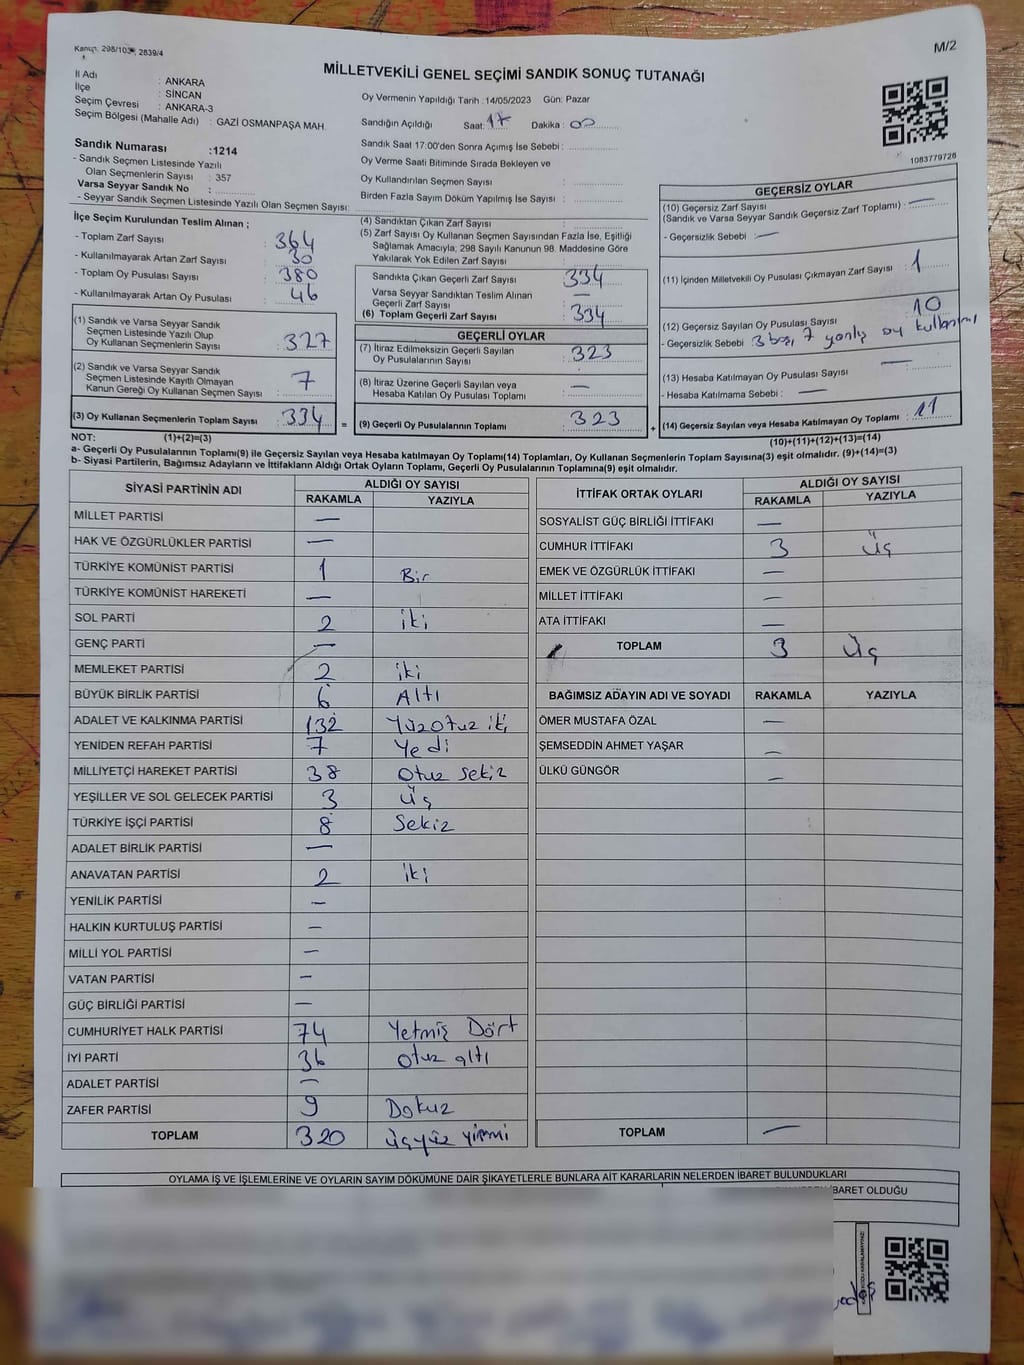 Kanun: 298/103, 2839/4
M/2
MİLLETVEKİLİ GENEL SEÇİMİ SANDIK SONUÇ TUTANAĞI
İl Adı : ANKARA
İlçe : SİNCAN
Seçim Çevresi : ANKARA-3
Seçim Bölgesi (Mahalle Adı) : GAZİ OSMANPAŞA MAH.
Oy Vermenin Yapıldığı Tarih : 14/05/2023 Gün: Pazar
Sandığın Açıldığı Saat: 17 Dakika : 00
Sandık Saat 17:00'den Sonra Açımış İse Sebebi :
Oy Verme Saati Bitiminde Sırada Bekleyen ve
Oy Kullandırılan Seçmen Sayısı :
Birden Fazla Sayım Döküm Yapılmış İse Sayısı :
1083779728
Sandık Numarası : 1214
- Sandık Seçmen Listesinde Yazılı
Olan Seçmenlerin Sayısı : 357
Varsa Seyyar Sandık No :
- Seyyar Sandık Seçmen Listesinde Yazılı Olan Seçmen Sayısı:
İlçe Seçim Kurulundan Teslim Alınan ;
- Toplam Zarf Sayısı : 364
- Kullanılmayarak Artan Zarf Sayısı : 30
- Toplam Oy Pusulası Sayısı : 380
- Kullanılmayarak Artan Oy Pusulası : 46
(1) Sandık ve Varsa Seyyar Sandık
Seçmen Listesinde Yazılı Olup
Oy Kullanan Seçmenlerin Sayısı : 327
(2) Sandık ve Varsa Seyyar Sandık
Seçmen Listesinde Kayıtlı Olmayan
Kanun Gereği Oy Kullanan Seçmen Sayısı : 7
(3) Oy Kullanan Seçmenlerin Toplam Sayısı : 334 =
(1)+(2)=(3)
(4) Sandıktan Çıkan Zarf Sayısı :
(5) Zarf Sayısı Oy Kullanan Seçmen Sayısından Fazla İse, Eşitliği
Sağlamak Amacıyla; 298 Sayılı Kanunun 98. Maddesine Göre
Yakılarak Yok Edilen Zarf Sayısı :
Sandıkta Çıkan Geçerli Zarf Sayısı : 334
Varsa Seyyar Sandıktan Teslim Alınan
Geçerli Zarf Sayısı : —
(6) Toplam Geçerli Zarf Sayısı : 334
GEÇERLİ OYLAR
(7) İtiraz Edilmeksizin Geçerli Sayılan
Oy Pusulalarının Sayısı : 323
(8) İtiraz Üzerine Geçerli Sayılan veya
Hesaba Katılan Oy Pusulası Toplamı : —
(9) Geçerli Oy Pusulalarının Toplamı : 323 +
GEÇERSİZ OYLAR
(10) Geçersiz Zarf Sayısı
(Sandık ve Varsa Seyyar Sandık Geçersiz Zarf Toplamı) : —
- Geçersizlik Sebebi : —
(11) İçinden Milletvekili Oy Pusulası Çıkmayan Zarf Sayısı : 1
(12) Geçersiz Sayılan Oy Pusulası Sayısı : 10
- Geçersizlik Sebebi 3 boş, 7 yanlış oy kullanımı
(13) Hesaba Katılmayan Oy Pusulası Sayısı : —
- Hesaba Katılmama Sebebi : —
(14) Geçersiz Sayılan veya Hesaba Katılmayan Oy Toplamı : 11
(10)+(11)+(12)+(13)=(14)
NOT:
a- Geçerli Oy Pusulalarının Toplamı(9) ile Geçersiz Sayılan veya Hesaba katılmayan Oy Toplamı(14) Toplamları, Oy Kullanan Seçmenlerin Toplam Sayısına(3) eşit olmalıdır. (9)+(14)=(3)
b- Siyasi Partilerin, Bağımsız Adayların ve İttifakların Aldığı Ortak Oyların Toplamı, Geçerli Oy Pusulalarının Toplamına(9) eşit olmalıdır.
SİYASİ PARTİNİN ADI ALDIĞI OY SAYISI
RAKAMLA YAZIYLA
MİLLET PARTİSİ —
HAK VE ÖZGÜRLÜKLER PARTİSİ —
TÜRKİYE KOMÜNİST PARTİSİ 1 Bir
TÜRKİYE KOMÜNİST HAREKETİ —
SOL PARTİ 2 iki
GENÇ PARTİ —
MEMLEKET PARTİSİ 2 iki
BÜYÜK BİRLİK PARTİSİ 6 Altı
ADALET VE KALKINMA PARTİSİ 132 Yüzotuz iki
YENİDEN REFAH PARTİSİ 7 Yedi
MİLLİYETÇİ HAREKET PARTİSİ 38 Otuz sekiz
YEŞİLLER VE SOL GELECEK PARTİSİ 3 Üç
TÜRKİYE İŞÇİ PARTİSİ 8 Sekiz
ADALET BİRLİK PARTİSİ —
ANAVATAN PARTİSİ 2 iki
YENİLİK PARTİSİ —
HALKIN KURTULUŞ PARTİSİ —
MİLLİ YOL PARTİSİ —
VATAN PARTİSİ —
GÜÇ BİRLİĞİ PARTİSİ —
CUMHURİYET HALK PARTİSİ 74 Yetmiş Dört
İYİ PARTİ 36 Otuz altı
ADALET PARTİSİ —
ZAFER PARTİSİ 9 Dokuz
TOPLAM 320 Üçyüz yirmi
İTTİFAK ORTAK OYLARI ALDIĞI OY SAYISI
RAKAMLA YAZIYLA
SOSYALİST GÜÇ BİRLİĞİ İTTİFAKI —
CUMHUR İTTİFAKI 3 Üç
EMEK VE ÖZGÜRLÜK İTTİFAKI —
MİLLET İTTİFAKI —
ATA İTTİFAKI —
TOPLAM 3 Üç
BAĞIMSIZ ADAYIN ADI VE SOYADI RAKAMLA YAZIYLA
ÖMER MUSTAFA ÖZAL —
ŞEMSEDDİN AHMET YAŞAR —
ÜLKÜ GÜNGÖR —
TOPLAM —
OYLAMA İŞ VE İŞLEMLERİNE VE OYLARIN SAYIM DÖKÜMÜNE DAİR ŞİKAYETLERLE BUNLARA AİT KARARLARIN NELERDEN İBARET BULUNDUKLARI
İBARET OLDUĞU